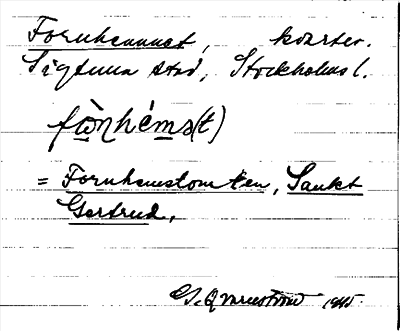 Fornhemmet, kvarter.
Sigtuna stad, Stockholms l.
fòṉhém̱s(t)
= Fornhemstomten, Sankt
Gertrud.
G. Qvarnström 1945